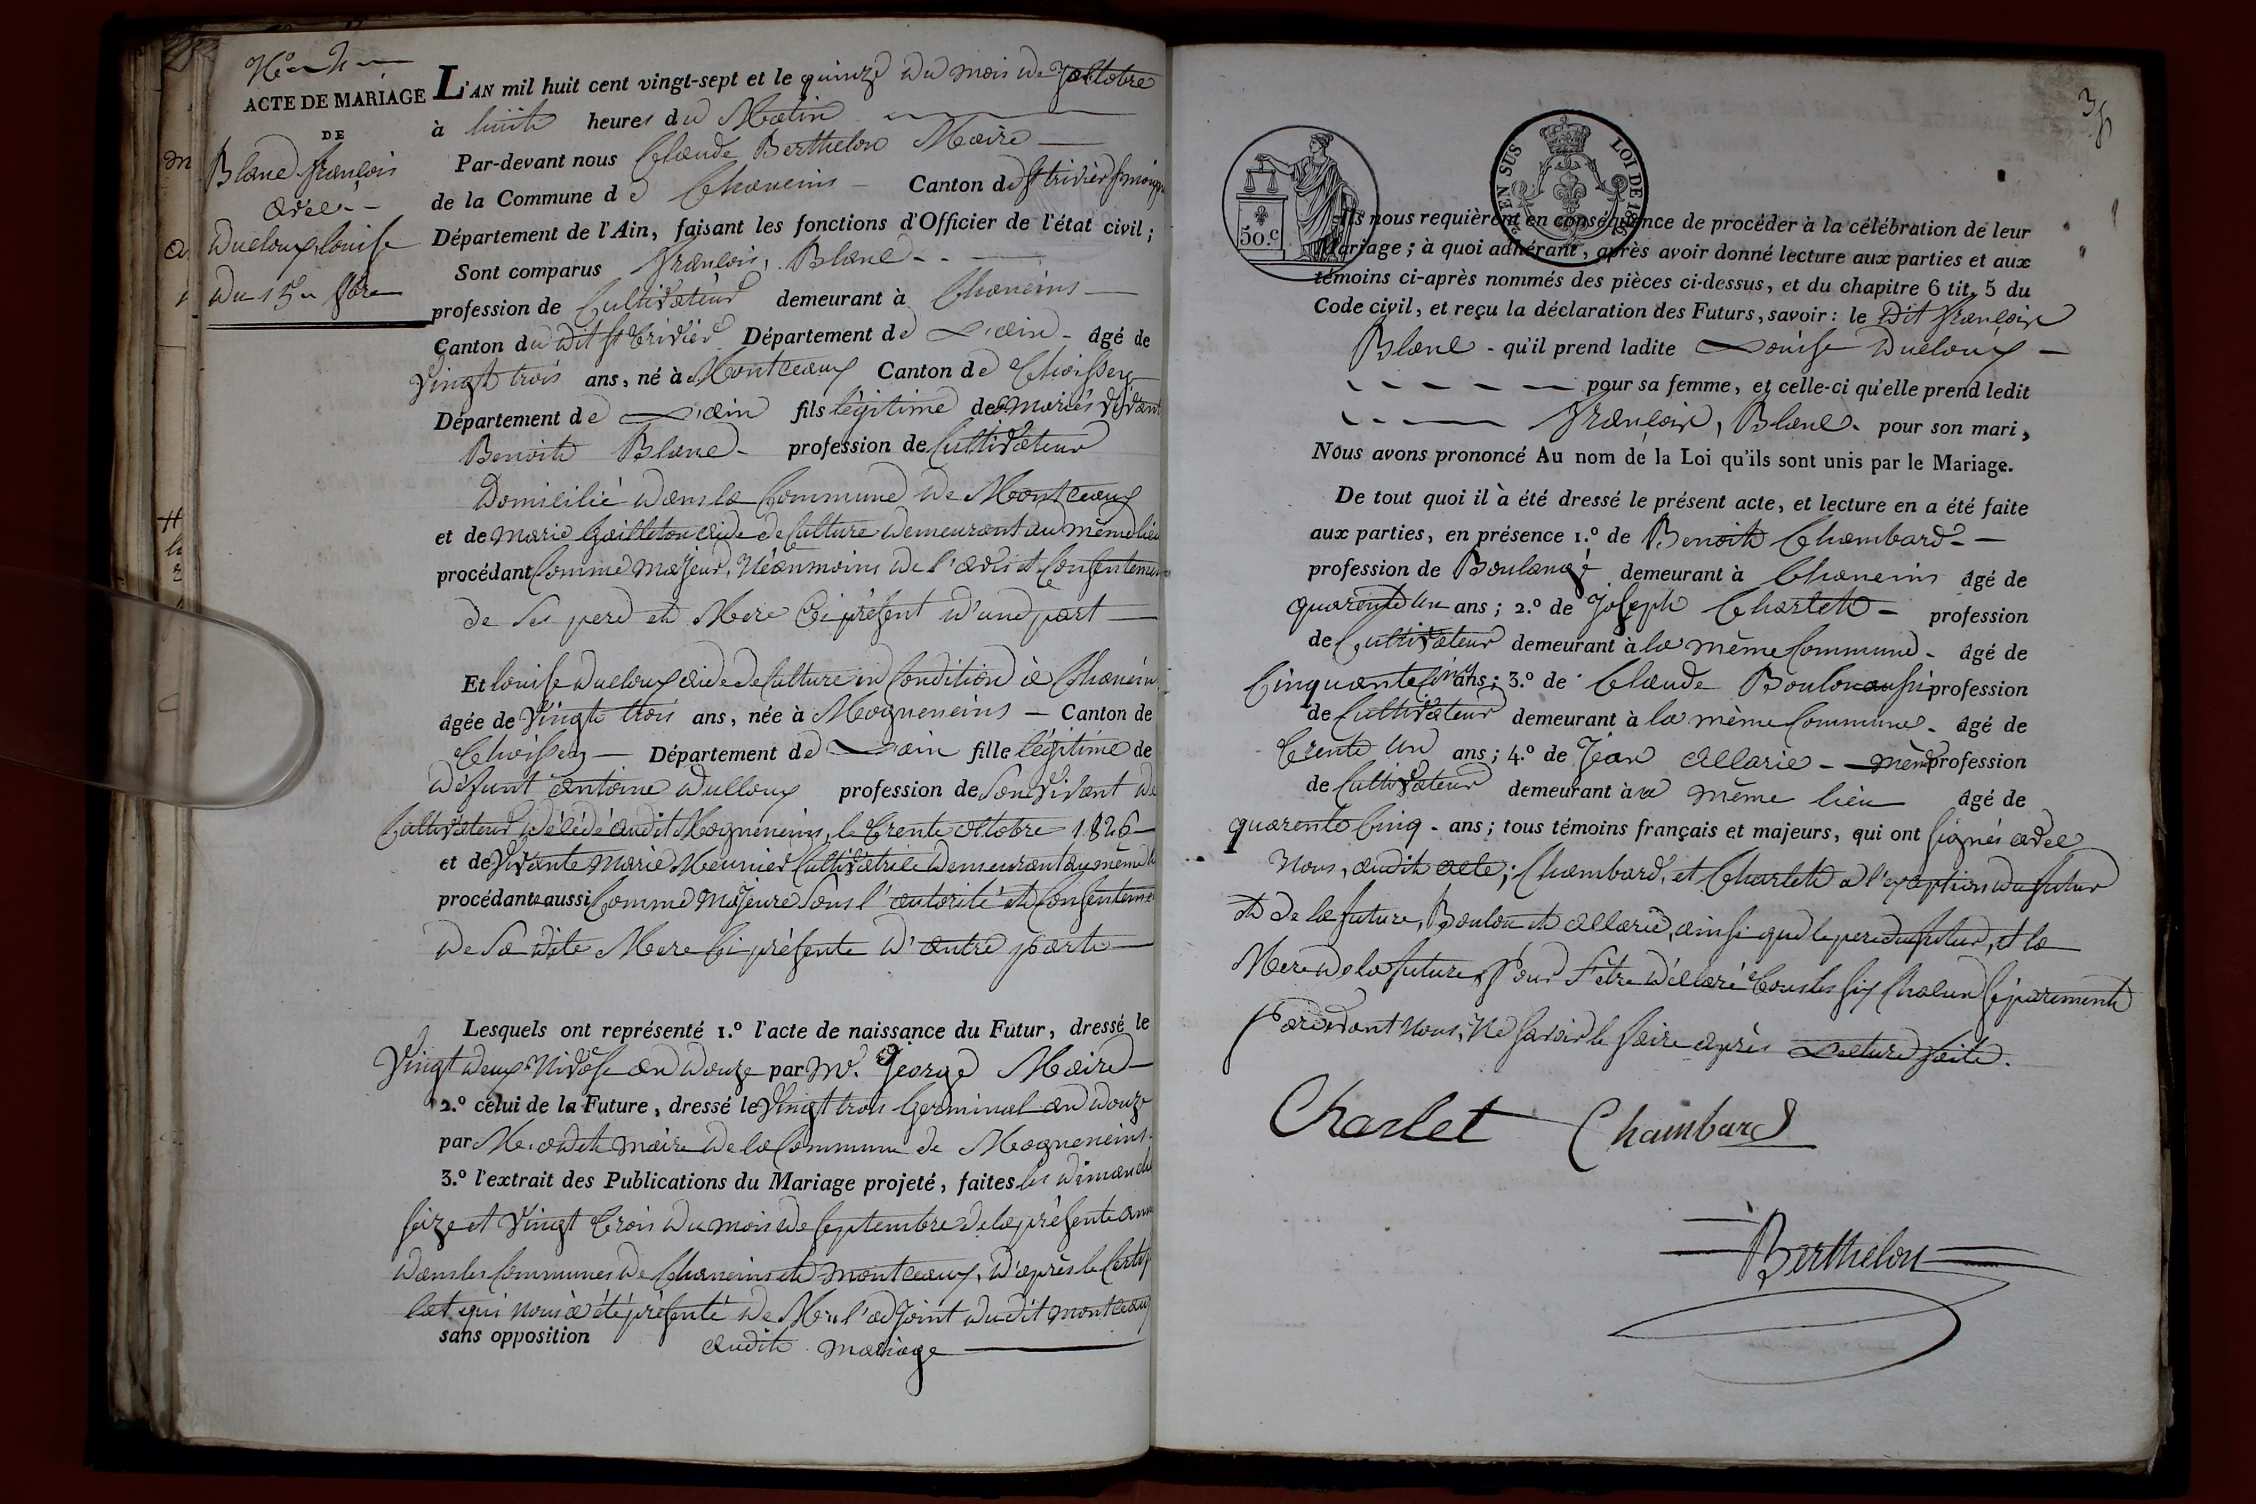 ACTE DE MARIAGE
DE
Blanc françois
avec
Ducloux louise
du 15 8bre
L'AN mil huit cent vingt-sept et le quinze du mois de 8octobre
à huit heures du Matin
Par-devant nous Claude Berthelon Maire
de la Commune de Chaneins Canton de St trivier
Département de l'Ain, faisant les fonctions d'Officier de l'état civil;
Sont comparus françois, Blanc
profession de Cultivateur demeurant à Chaneins
Canton du dit St Trivier Département de L'ain âgé de
Vingt trois ans, né à Montceaux Canton de Thoissey
Département de L'ain fils légitime des mariés vivant
Benoit Blanc profession de Cultivateur
Domicilié dans la Commune de Montceaux
et de Marie Gailleton aide de Culture demeurant au même lieu
procédant Comme Majeur, Néanmoins de l'avis et Consentement
de Ses pere et Mere Ci présent d'une part
Et louise Ducloux aide de Culture en Condition à Chaneins
âgée de Vingt trois ans, née à Mogneneins Canton de
Thoissey Département de L'ain fille légitime de
défunt antoine Ducloux profession de Son vivant de
Cultivateur décédé audit Mogneneins, le trente octobre 1826
et de Vivante Marie Meunier Cultivatrice demeurant au même
procédante aussi Comme Majeure Sous l'autorité et Consentement
de Sa dite Mere Ci présente d'autre part
Lesquels ont représenté 1.º l'acte de naissance du Futur, dressé le
Vingt deux Nivôse an douze par Mr. George Maire
2.º celui de la Future, dressé le Vingt trois Germinal an douze
par maire de la Commune de Mogneneins
3.º l'extrait des Publications du Mariage projeté, faites les dimanche
Seize et Vingt trois du mois de Septembre de la présente année
dans les Communes de Chaneins et Montceaux, d'après le Certifi
cat qui nous a été présenté de Mr l'adjoint dudit Montceaux
sans opposition audit mariage
50.C
EN SUS
LOI DE
Ils nous requièrent en conséquence de procéder à la célébration de leur
Mariage; à quoi adhérant, après avoir donné lecture aux parties et aux
témoins ci-après nommés des pièces ci-dessus, et du chapitre 6 tit. 5 du
Code civil, et reçu la déclaration des Futurs, savoir: le Dit françois
Blanc - qu'il prend ladite Louise Ducloux
pour sa femme, et celle-ci qu'elle prend ledit
françois, Blanc pour son mari,
Nous avons prononcé Au nom de la Loi qu'ils sont unis par le Mariage.
De tout quoi il à été dressé le présent acte, et lecture en a été faite
aux parties, en présence 1.º de Benoit Chambard
profession de Boulangé demeurant à Chaneins âgé de
quarente Un ans; 2.º de Joseph Charlet profession
de Cultivateur demeurant à la même Commune âgé de
Cinquante Cinq ans; 3.º de Claude Boulon aussi profession
de Cultivateur demeurant à la même Commune âgé de
trente Un ans; 4.º de Jean allarie même profession
de Cultivateur demeurant à u même lieu âgé de
quarente Cinq ans; tous témoins français et majeurs, qui ont signés avec
Nous, audit acte; Chambard, et Charlet a l'exeption du futur
et de la future, Boulon et allarie, ainsi que le pere du futur, et la
Mere de la future, Pour S'être déclaré tous les six Chacun séparement
Pardevant Nous, Ne Savoir le faire après Lecture faite.
Charlet Chambard
Berthelon